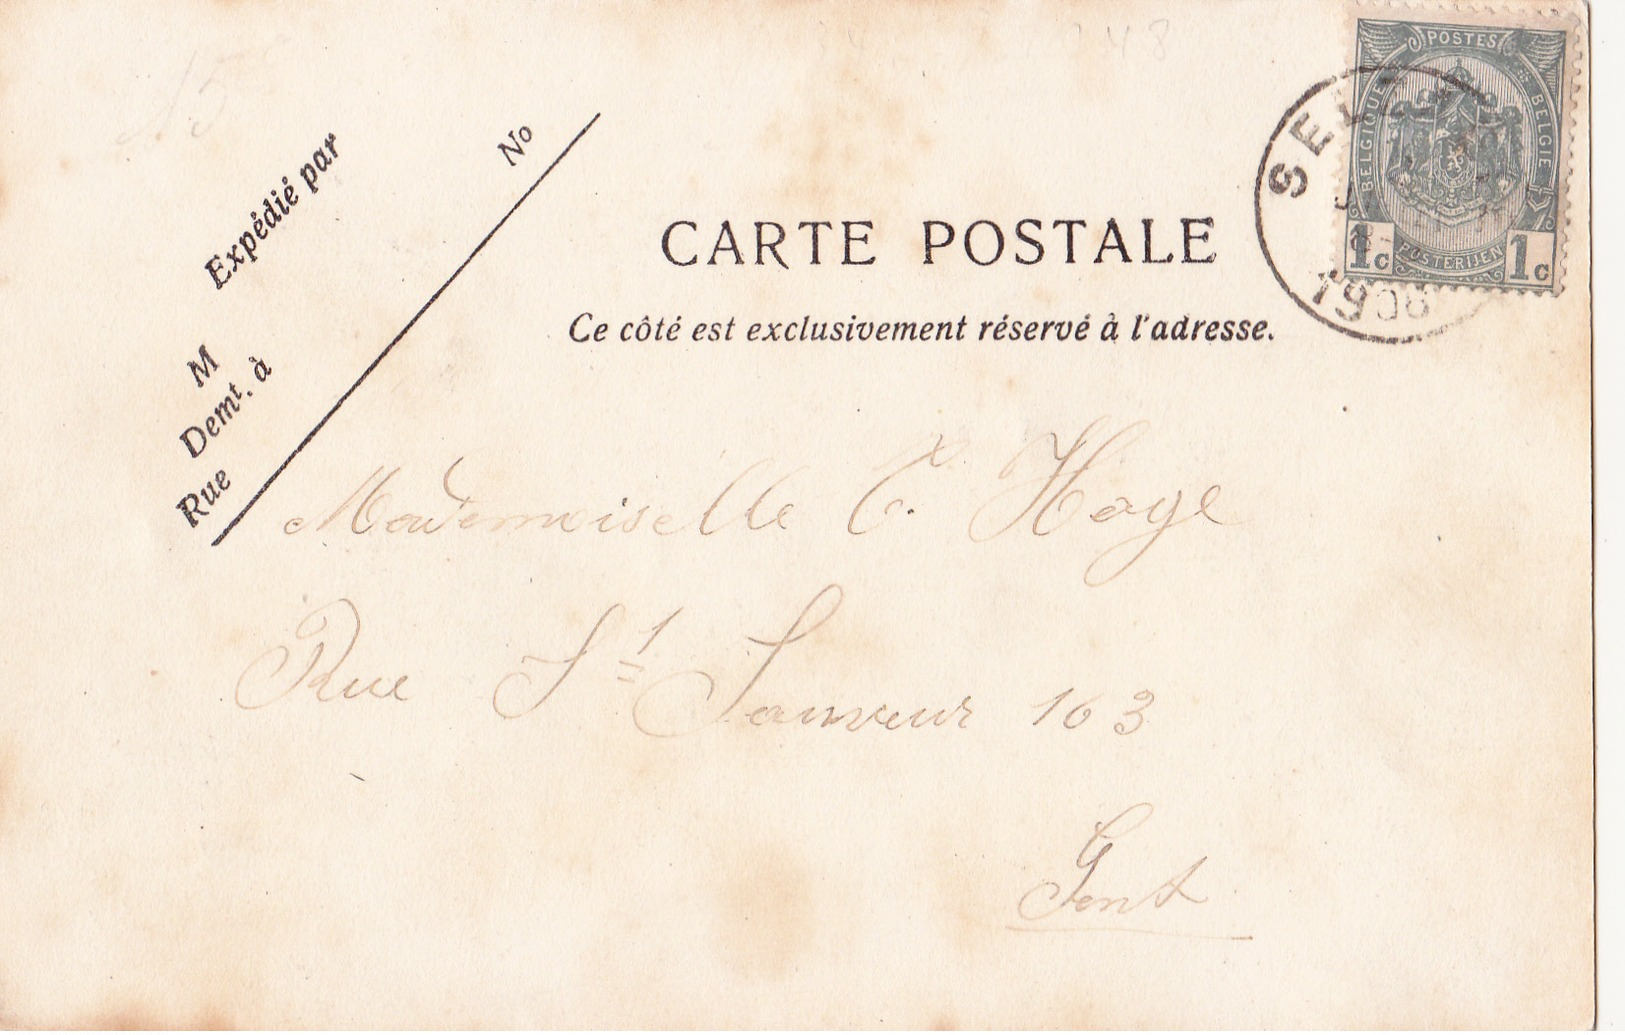 Expédié par
No
M
Demt. à
Rue
CARTE POSTALE
Ce côté est exclusivement réservé à l'adresse.
POSTES
BELGIQUE
BELGIE
POSTERIJEN
1c
1c
Mademoiselle C. Haye
Rue St Sauveur 163
Gent
15